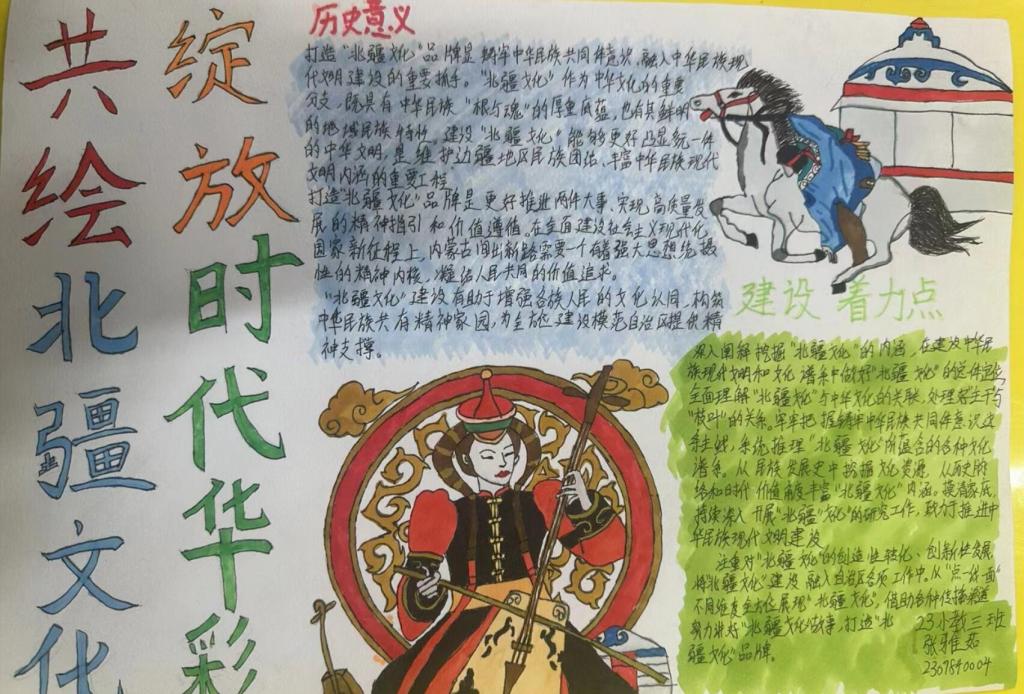 共绘北疆文化
绽放时代华彩
历史意义
打造"北疆文化"品牌是铸牢中华民族共同体意识,融入中华民族现
代文明建设的重要抓手。"北疆文化"作为中华文化的重要
分支,既具有中华民族"根与魂"的厚重底蕴,也有其鲜明
的地域民族特性。建设"北疆文化"能够更好凸显统一体
的中华文明,是维护边疆地区民族团结、丰富中华民族现代
文明内涵的重要工程。
打造"北疆文化"品牌是更好推进两件大事,实现高质量发
展的精神指引和价值遵循。在全面建设社会主义现代化
国家新征程上,内蒙古闯出新路需要一个有着强大思想统摄
性的精神内核,凝结人民共同的价值追求。
"北疆文化"建设有助于增强各族人民的文化认同,构筑
中华民族共有精神家园,为全方位建设模范自治区提供精
神支撑。
建设着力点
深入阐释挖掘"北疆文化"的内涵,在建设中华民
族现代文明和文化谱系中做好"北疆文化"的
全面理解"北疆文化"与中华文化的关联,处理好主干与
"枝叶"的关系,牢牢把握铸牢中华民族共同体意识这
条主线,系统推理"北疆文化"所蕴含的各种文化
谱系。从民族发展史中挖掘文化资源,从历史脉
络和时代价值中丰富"北疆文化"内涵。摸清家底,
持续深入开展"北疆文化"的研究工作,致力推进中
华民族现代文明建设
注重对"北疆文化"的创造性转化、创新性发展,
将"北疆文化"建设融入自治区各项工作中,从"点一线一面"
不同维度全方位展现"北疆文化",借助各种传播渠道
努力讲好"北疆文化"故事,打造"北
疆文化"品牌。
23小教三班
张雅茹
2307840004